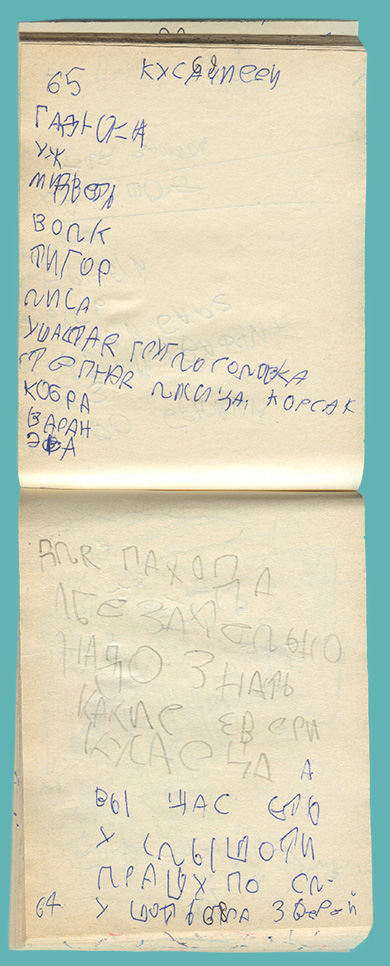 65 КУСАЧПЕЕЙ
ГАДЮКА
УЖ
МИДВЕТЬ
ВОЛК
ТИГОР
ЛИСА
УШАСТАЯ ГРУГЛОГОЛОВКА
СТЕПНАЯ ЛИСИЦА, КОРСАК
КОБРА
ВАРАН
ЭФА
ДЛЯ ПАХОДА
АБЕЗАТЕЛЬНО
НАДО ЗНАТЬ
КАКИЕ ЗВЕРИ
КУСАЕЦА
А
ВЫ ЩАС ЭТО
УСЛЫШОТИ
ПРАШУ ПО СЛ-
64 УШОТЬ ЗВЕРЕЙ